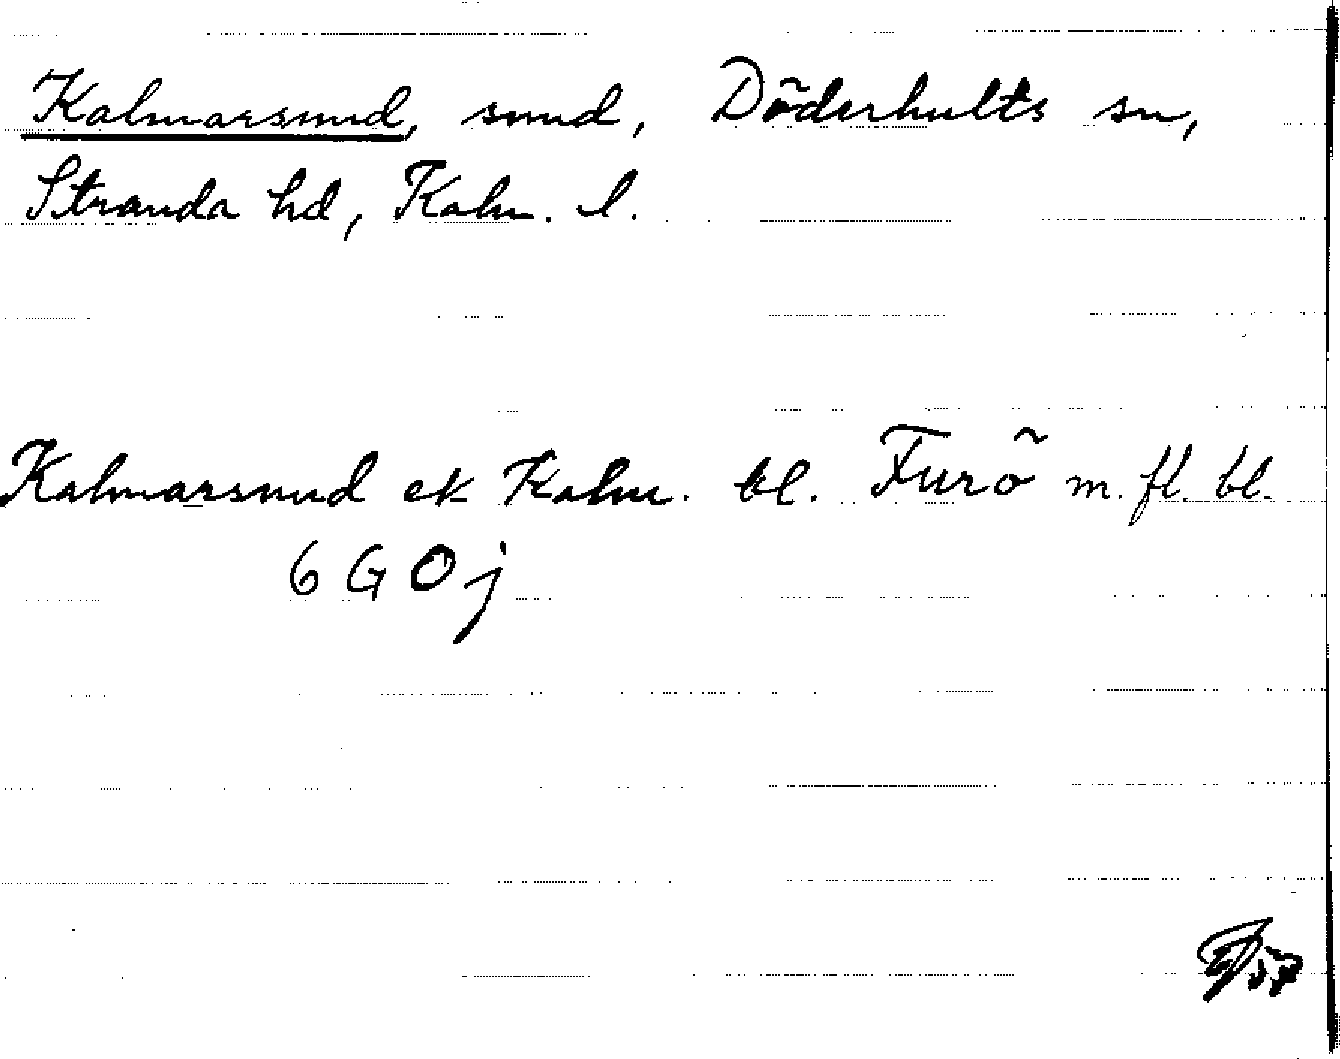 Kalmarsund, sund, Döderhults sn,
Stranda hd, Kalm. l.
Kalmarsund ek Kalm. bl. Furö m. fl. bl.
6 G O j